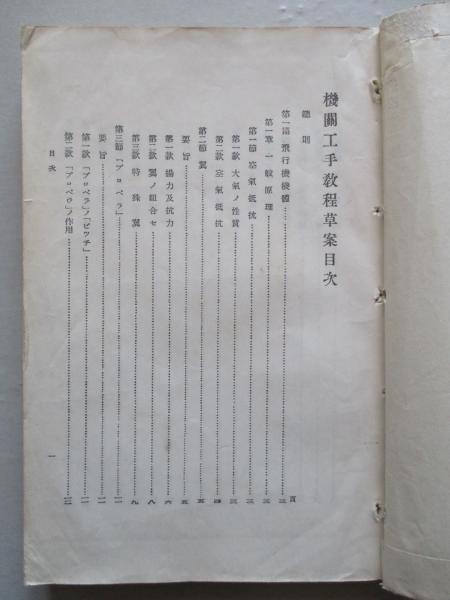 機關工手敎程草案目次
總則
頁
第一篇 飛行機機體 三
第一章 一般原理 三
第一節 空氣抵抗 三
第一款 大氣ノ性質 三
第二款 空氣抵抗 四
第二節 翼 五
要旨 五
第一款 揚力及抗力 六
第二款 翼ノ組合セ 八
第三款 特殊翼 九
第三節 「プロペラ」 一一
要旨 一一
第一款 「プロペラ」ノ「ピッチ」 一一
第二款 「プロペラ」ノ作用 一二
目次
一